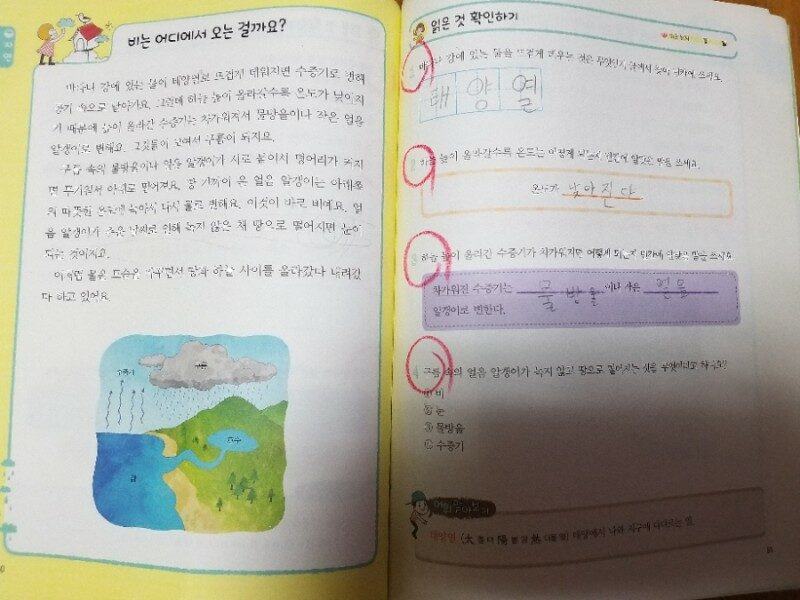 비는 어디에서 오는 걸까요?
바다나 강에 있는 물이 태양열로 뜨겁게 데워지면 수증기로 변해
공기 속으로 날아가요. 그런데 하늘 높이 올라갈수록 온도가 낮아지
기 때문에 높이 올라간 수증기는 차가워져서 물방울이나 작은 얼음
알갱이로 변해요. 그것들이 모여서 구름이 되지요.
구름 속의 물방울이나 얼음 알갱이가 서로 붙어서 덩어리가 커지
면 무거워서 아래로 떨어져요.
의 따뜻한 온도에 녹아서 다시 물로 변해요. 이것이 바로 비예요. 얼
음 알갱이가 추운 날씨로 인해 녹지 않은 채 땅으로 떨어지면 눈이
되는 것이지요.
이처럼 물은 모습을 바꾸면서 땅과 하늘 사이를 올라갔다 내려갔
다 하고 있어요.
수증기
구름
호수
읽은 것 확인하기
1 바다나 강에 있는 물을 뜨겁게 데우는 것은 무엇인지
태양열
2 하늘 높이 올라갈수록 온도는 어떻게 알맞은 말을 쓰세요.
온도가 낮아진다
3 하늘 높이 올라간 수증기가 차가워지면 어떻게 알맞은 말을 쓰세요.
차가워진 수증기는 물방울이나 작은 얼음
알갱이로 변한다.
4 구름 속의 얼음 알갱이가 녹지 않고 땅으로 떨어지는 것을 무엇이라고 하나요?
① 비
② 눈
③ 물방울
④ 수증기
태양열 (太 클 태 陽 볕 양 熱 더울 열) 태양에서 나와 지구에 도달하는 열.